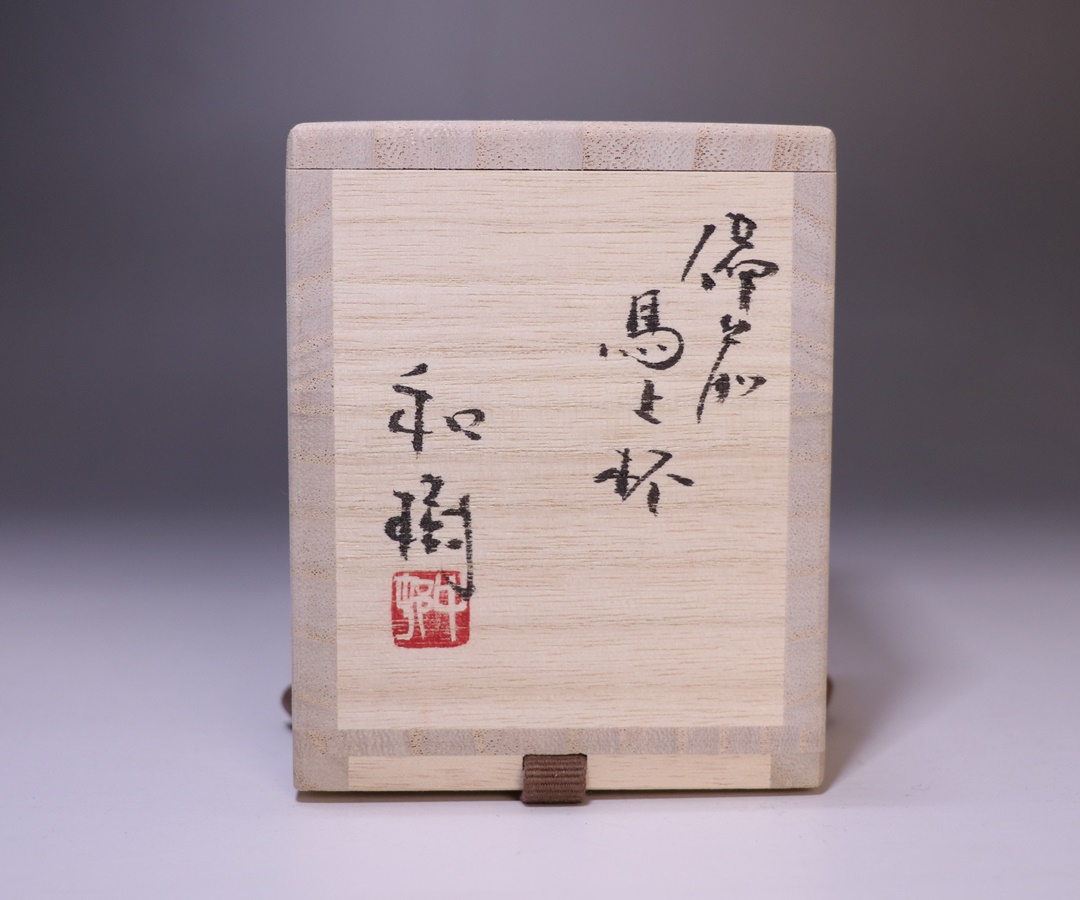 備前
馬上杯
和樹